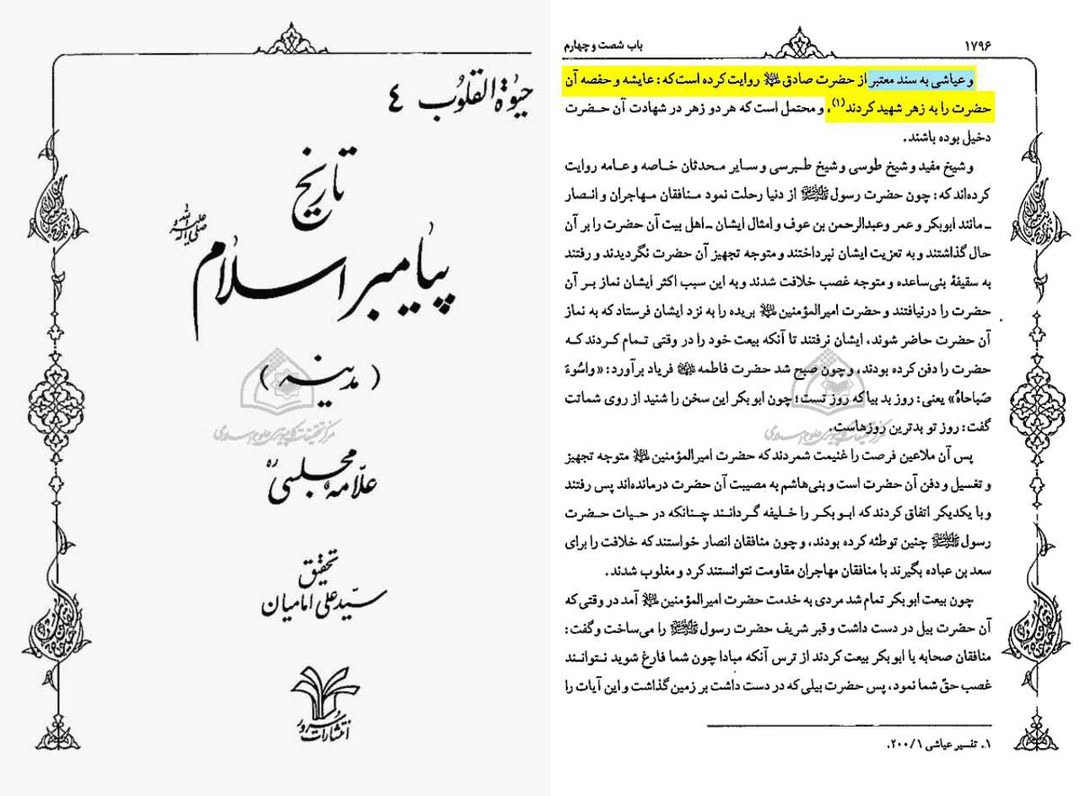 حیوة القلوب ٤
تاریخ
پیامبر اسلام
صلی الله علیه وآله
(مدینه)
مرکز تحقیقات کامپیوتری علوم اسلامی
علّامه مجلسی ره
تحقیق
سیّد علی امامیان
انتشارات سرور
۱۷۹۶
باب شصت و چهارم
و عیاشی به سند معتبر از حضرت صادق ﷷ روایت کرده است که: عایشه و حفصه آن
حضرت را به زهر شهید کردند(۱)، و محتمل است که هر دو زهر در شهادت آن حضرت
دخیل بوده باشند.
و شیخ مفید و شیخ طوسی و شیخ طبرسی و سایر محدثان خاصه و عامه روایت
کرده‌اند که: چون حضرت رسول ﷺ از دنیا رحلت نمود منافقان مهاجران و انصار
ـ مانند ابوبکر و عمر وعبدالرحمن بن عوف و امثال ایشان ـ اهل بیت آن حضرت را بر آن
حال گذاشتند و به تعزیت ایشان نپرداختند و متوجه تجهیز آن حضرت نگردیدند و رفتند
به سقیفۀ بنی‌ساعده و متوجه غصب خلافت شدند و به این سبب اکثر ایشان نماز بر آن
حضرت را درنیافتند و حضرت امیرالمؤمنین ﷷ بریده را به نزد ایشان فرستاد که به نماز
آن حضرت حاضر شوند، ایشان نرفتند تا آنکه بیعت خود را در وقتی تمام کردند که
حضرت را دفن کرده بودند، و چون صبح شد حضرت فاطمه ﷷ فریاد برآورد: «واسُوءَ
صَباحاهُ» یعنی: روز بد بیا که روز تست؛ چون ابو بکر این سخن را شنید از روی شماتت
گفت: روز تو بدترین روزهاست.
پس آن ملاعین فرصت را غنیمت شمردند که حضرت امیرالمؤمنین ﷷ متوجه تجهیز
و تغسیل و دفن آن حضرت است و بنی‌هاشم به مصیبت آن حضرت درمانده‌اند پس رفتند
و با یکدیگر اتفاق کردند که ابو بکر را خلیفه گردانند چنانکه در حیات حضرت
رسول ﷺ چنین توطئه کرده بودند، و چون منافقان انصار خواستند که خلافت را برای
سعد بن عباده بگیرند با منافقان مهاجران مقاومت نتوانستند کرد و مغلوب شدند.
چون بیعت ابو بکر تمام شد مردی به خدمت حضرت امیرالمؤمنین ﷷ آمد در وقتی که
آن حضرت بیل در دست داشت و قبر شریف حضرت رسول ﷺ را می‌ساخت و گفت:
منافقان صحابه با ابو بکر بیعت کردند از ترس آنکه مبادا چون شما فارغ شوید نتوانند
غصب حقّ شما نمود، پس حضرت بیلی که در دست داشت بر زمین گذاشت و این آیات را
مرکز تحقیقات کامپیوتری علوم اسلامی
۱. تفسیر عیاشی ۲۰۰/۱.